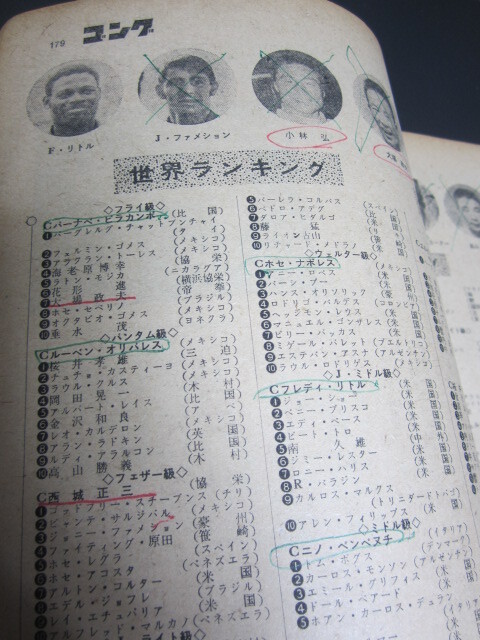 179 ゴング
F・リトル
J・ファメション
小林 弘
世界ランキング
◇フライ級◇
Cバーナベ・ビラカンポ(比国)
❶バーグレルグ・チャットワンチャイ(タイ)
❷フェルミン・ゴメス(メキシコ)
❸アラクラン・トーレス(メキシコ)
❹海老原博幸(協栄)
❺ラトン・モジカ(ニカラグア)
❻花形進(横浜協栄)
❼大場政夫(帝拳)
❽ホセ・セベリノ(ブラジル)
❾オクタビオ・ゴメス(メキシコ)
❿垂水茂(ヨネクラ)
◇バンタム級◇
Cルーベン・オリバレス(メキシコ)
❶桜井孝雄(三迫)
❷チューチョ・カスティーヨ(メキシコ)
❸ラウル・クルス(メキシコ)
❹岡田晃一(木村)
❺アルバート・レイス(比国)
❻金沢和良(アベ)
❼レオ・カルデロン(メキシコ)
❽アラン・ラドキン(英国)
❾ルディ・アラルコン(比国)
❿高山勝義(木村)
◇フェザー級◇
C西城正三(協栄)
❶ゴドフリー・スチーブンス(チリ)
❷ビセンテ・サルジバル(メキシコ)
❸ジョニー・ファメション(豪州)
❹ファイティング・原田(笹崎)
❺ホセ・レグラ(スペイン)
❻ホセ・アコスタ(ベネズエラ)
❼アルトン・コルター(米国)
❽エデル・ジョフレ(ブラジル)
❾レイ・エチュバリア(米国)
❿アルフレッド・マルカノ(ベネズエラ)
◇ライト級◇
❺バーレラ・コルバス(スペイン)
❻ペドロ・アデグ(比国)
❼ダロア・ヒダルゴ(米国)
❽藤猛
❾ライオン古山(笹崎)
❿リチャード・メドラノ(米国)
◇ウェルター級◇
Cホセ・ナポレス(メキシコ)
❶アニー・ロペス(米国)
❷バーン・ブー
❸ハンス・オリソリック
❹ロドリゴ・バルデス(コロンビア)
❺ヘッジモン・レウス(米国)
❻マニュエル・ゴンザレス(米国)
❼ビリー・バッカス(米国)
❽ミグール・バレット(プエルトリコ)
❾エステバン・アスチ(アルゼンチン)
❿ラウル・ロドリゲス(メキシコ)
◇J・ミドル級◇
Cフレディ・リトル(米国)
❶ジョー・ショー(米国)
❷ベニー・ブリスコ(米国)
❸エディ・ペース(米国)
❹ピート・トロ(米国)
❺南久雄(中外)
❻ジミー・レスター(米国)
❼ロニー・ハリス(米国)
❽R・バラジン
❾カルロス・マルクス(トリニダードトバゴ)
❿アレン・フィリップス(米国)
◇ミドル級◇
Cニノ・ベンベヌチ(イタリア)
❶トム・ボグス(デンマーク)
❷カーロス・モンソン(アルゼンチン)
❸エミール・グリフィス(米国)
❹ドール・ベアード(米国)
❺ホアン・カーロス・デュラン(イタリア)